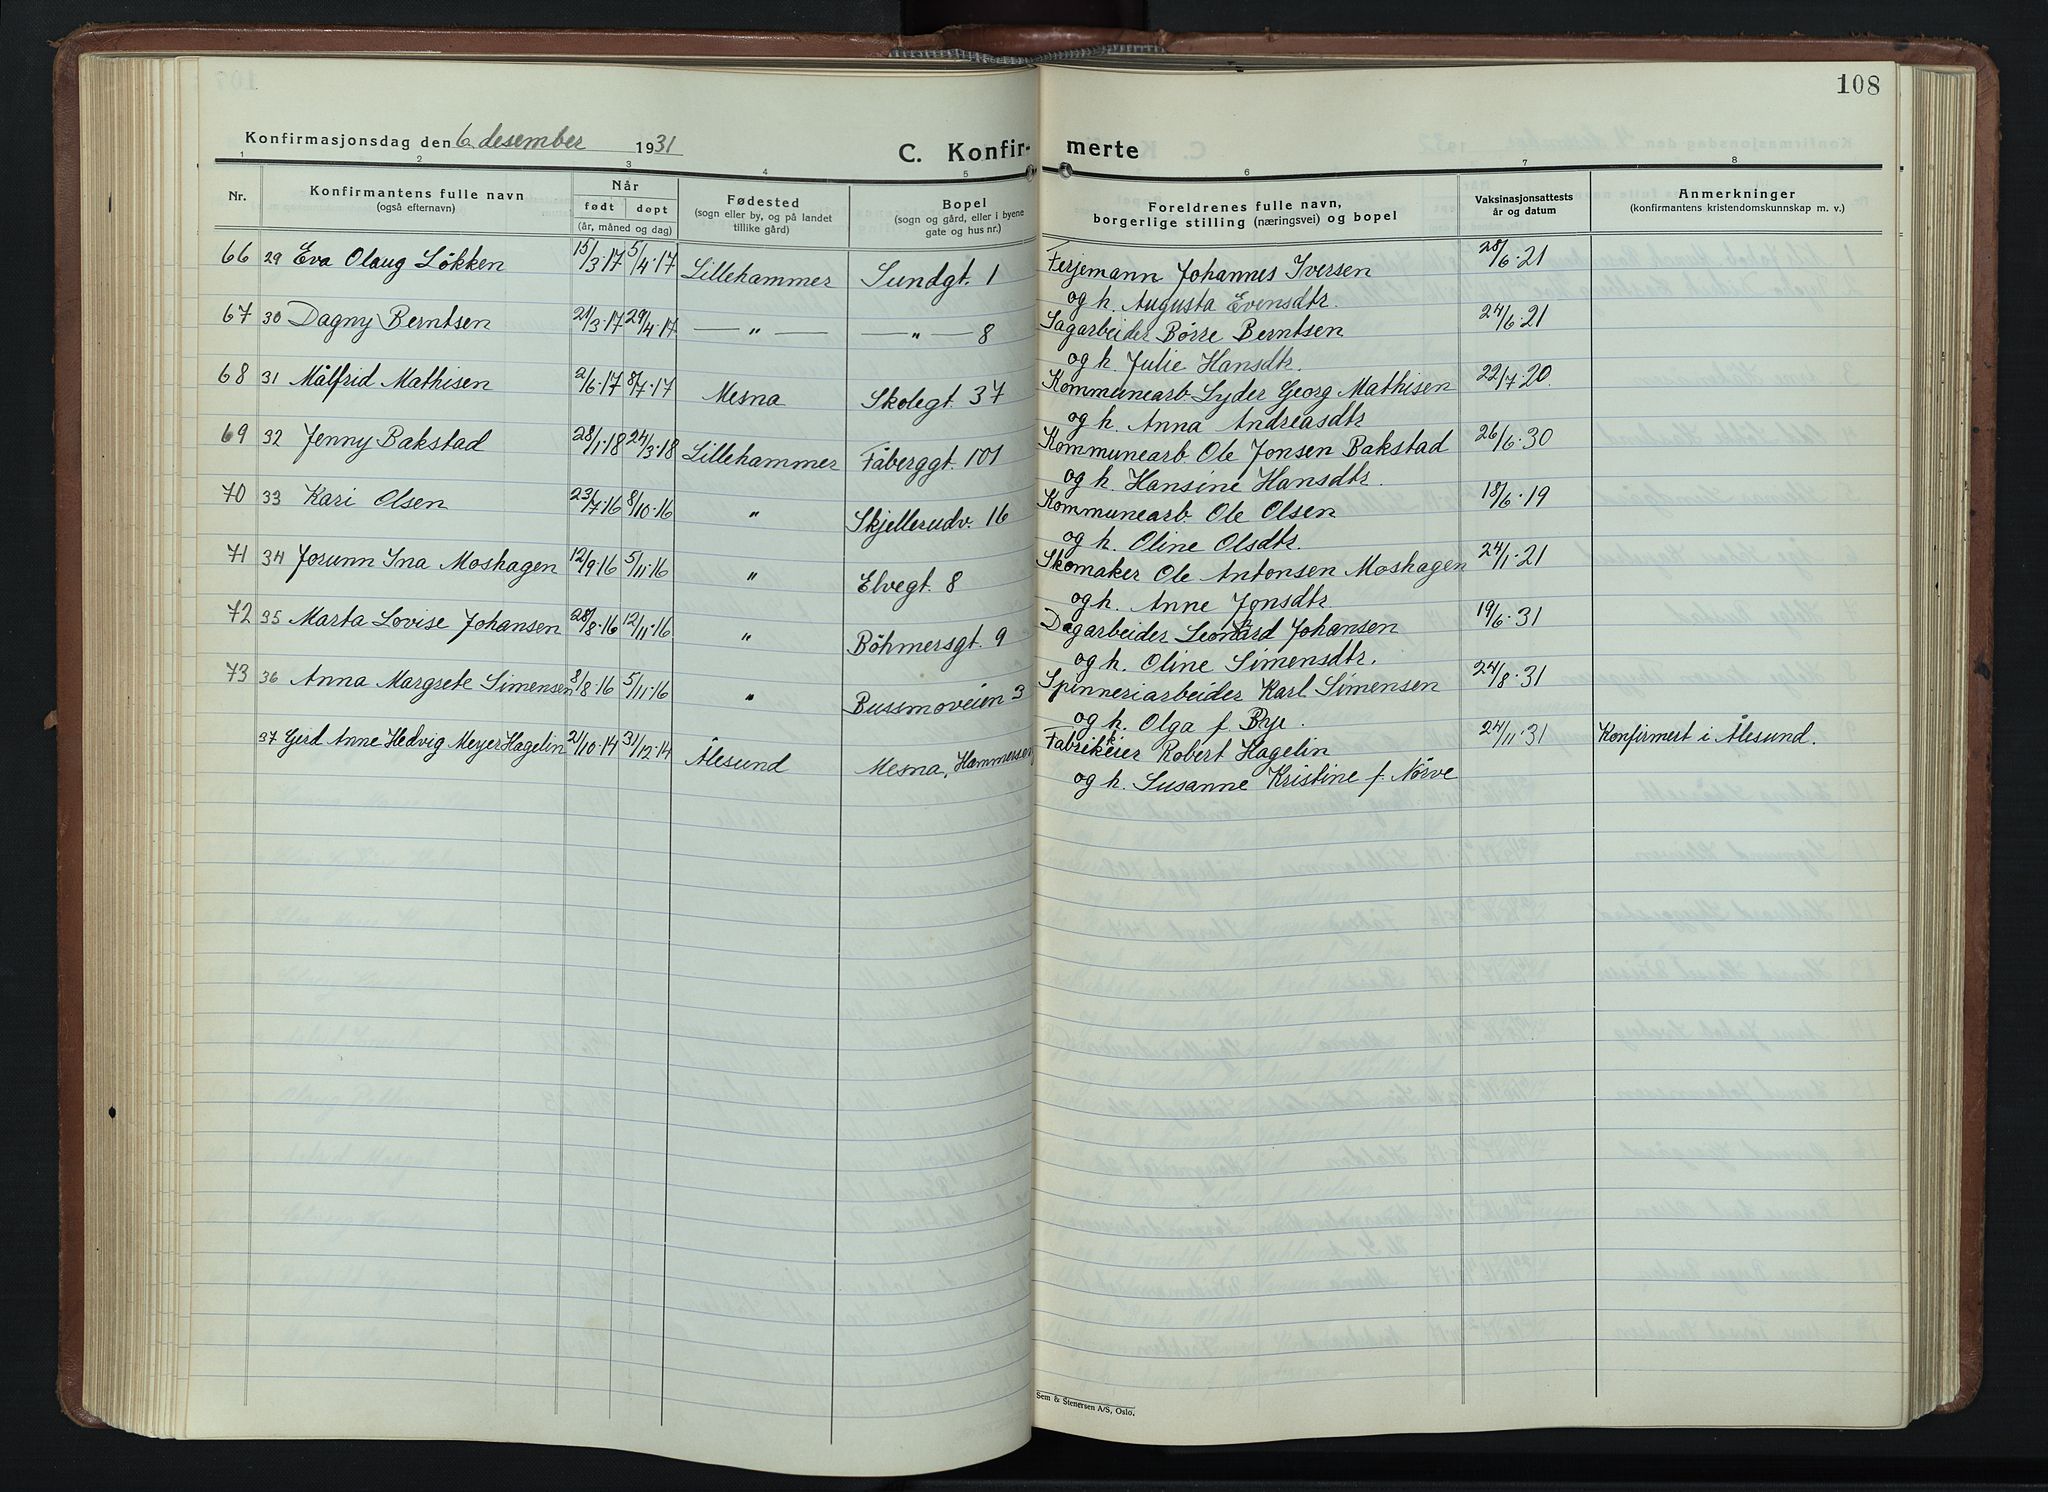 108
Konfirmasjonsdag den 6. desember 1931
C. Konfir- merte
1 2 3 4 5 6 7 8
Nr.
Konfirmantens fulle navn
(også efternavn)
Når
født døpt
(år, måned og dag)
Fødested
(sogn eller by, og på landet
tillike gård)
Bopel
(sogn og gård, eller i byene
gate og hus nr.)
Foreldrenes fulle navn,
borgerlige stilling (næringsvei) og bopel
Vaksinasjonsattests
år og datum
Anmerkninger
(konfirmantens kristendomskunnskap m. v.)
66 29 Eva Olaug Løkken 15/3·17 5/4·17 Lillehammer Sundgt. 1 Ferjemann Johannes Iversen 28/6·21
og h. Augusta Evensdtr.
67 30 Dagny Berntsen 21/3·17 29/4·17 — " — — " — 8 Sagarbeider Børre Berntsen 24/6·21
og h. Julie Hansdtr.
68 31 Målfrid Mathisen 2/6·17 8/7·17 Mesna Skolegt. 37 Kommunearb. Lyder Georg Mathisen 22/7·20.
og h. Anna Andreasdtr
69 32 Jenny Bakstad 28/1·18 24/3·18 Lillehammer Fåberggt. 101 Kommunearb. Ole Jonsen Bakstad 26/6·30
og h. Hansine Hansdtr.
70 33 Kari Olsen 23/7·16 8/10·16 " Skjellerudv. 16 Kommunearb. Ole Olsen 18/6·19
og h. Oline Olsdtr.
71 34 Jorunn Ina Moshagen 12/9·16 5/11·16 " Elvegt. 8 Skomaker Ole Antonsen Moshagen 24/1·21
og h. Anne Jonsdtr.
72 35 Marta Lovise Johansen 28/8·16 12/11·16 " Bøhmersgt. 9 Dagarbeider Leonard Johansen 19/6·31
og h. Oline Simensdtr.
73 36 Anna Margrete Simensen 8/8·16 5/11·16 " Bussmoveien 3 Spinneriarbeider Karl Simensen 24/8·31
og h. Olga f. Bye.
37 Gerd Anne Hedvig Meyer Hagelin 21/10·14 31/12·14 Ålesund Mesna, Hammerseng Fabrikeier Robert Hagelin 24/11·31 Konfirmert i Ålesund.
og h. Susanne Kristine f. Nørve
Sem & Stenersen A/S, Oslo.